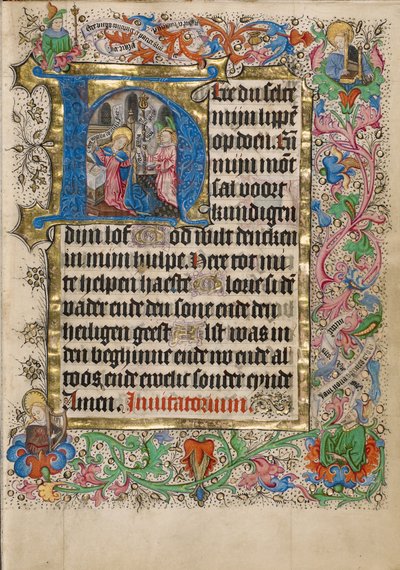 Here du selte
mijn lippē
op doen. En̄
mijn mōt
sal voort
kundigen
dijn lof God wilt dencken
in mijn hulpe. Here tot mi
te helpen haeste Glorie si dē
vader ende den sone ende den
heiligen geest Alst was in
den beghinne ende nu ende al
toos ende ewelic sonder eynde
Amen. Inuitatorium.